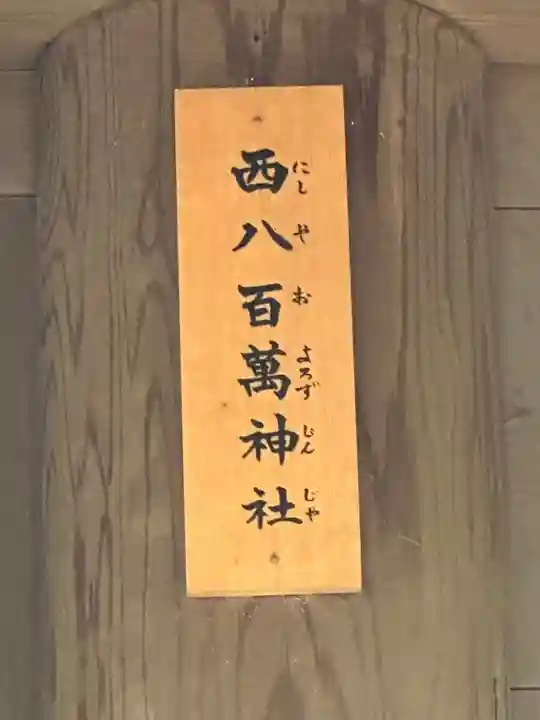 西八百萬神社
にしやおよろずじんじや